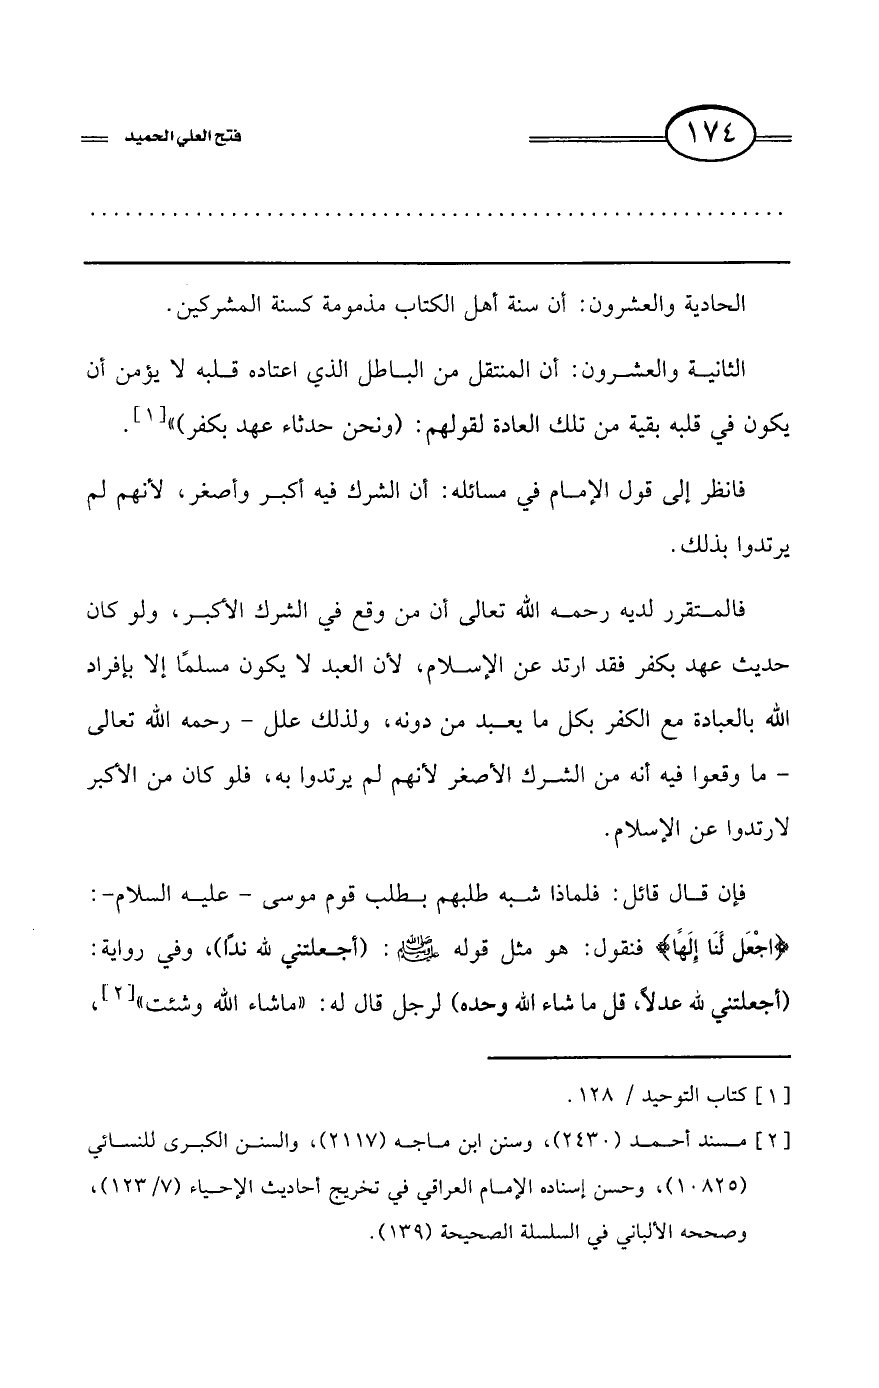 ١٧٤ فتح العلي الحميد
................................................................
الحادية والعشرون: أن سنة أهل الكتاب مذمومة كسنة المشركين.
الثانية والعشرون: أن المنتقل من الباطل الذي اعتاده قلبه لا يؤمن أن
يكون في قلبه بقية من تلك العادة لقولهم: (ونحن حدثاء عهد بكفر)»[١].
فانظر إلى قول الإمام في مسائله: أن الشرك فيه أكبر وأصغر، لأنهم لم
يرتدوا بذلك.
فالمتقرر لديه رحمه الله تعالى أن من وقع في الشرك الأكبر، ولو كان
حديث عهد بكفر فقد ارتد عن الإسلام، لأن العبد لا يكون مسلمًا إلا بإفراد
الله بالعبادة مع الكفر بكل ما يعبد من دونه، ولذلك علل – رحمه الله تعالى
– ما وقعوا فيه أنه من الشرك الأصغر لأنهم لم يرتدوا به، فلو كان من الأكبر
لارتدوا عن الإسلام.
فإن قال قائل: فلماذا شبه طلبهم بطلب قوم موسى – عليه السلام–:
﴿اجْعَل لَّنَا إِلَهًا﴾ فنقول: هو مثل قوله ﷺ : (أجعلتني لله ندًا)، وفي رواية:
(أجعلتني لله عدلاً، قل ما شاء الله وحده) لرجل قال له: «ماشاء الله وشئت»[٢]،
[١] كتاب التوحيد / ١٢٨ .
[٢] مسند أحمد (٢٤٣٠)، وسنن ابن ماجه (٢١١٧)، والسنن الكبرى للنسائي
(١٠٨٢٥)، وحسن إسناده الإمام العراقي في تخريج أحاديث الإحياء (١٢٣/٧)،
وصححه الألباني في السلسلة الصحيحة (١٣٩).